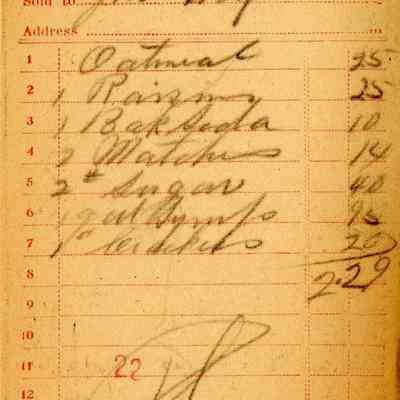 Sold to
Address
1 Oatmeal 25
2 1 Raisins 25
3 1 Bak Soda 10
4 2 Matches 14
5 2# Sugar 40
6 1 gal Syrup 95
7 1# Crackers 20
8 2.29
9
10
11 22
12